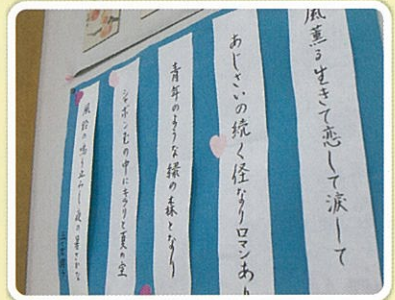 風薫る生きて恋して涙して
あじさいの続く径なりロマンあり
青年のような緑の森となり
シャボン玉の中にキラリと夏の空
風鈴の鳴り止みし夜の暑さかな